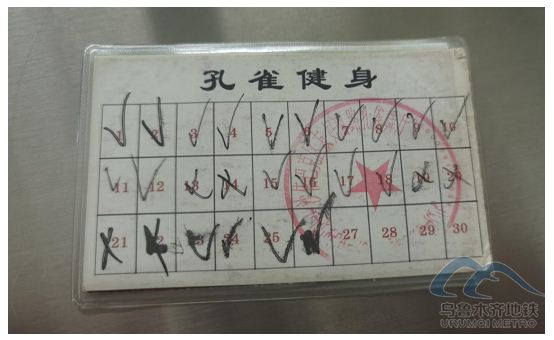 孔雀健身
1 2 3 4 5 6 7 8 9 10
11 12 13 14 15 16 17 18 19 20
21 22 23 24 25 26 27 28 29 30
乌鲁木齐地铁
URUMQI METRO